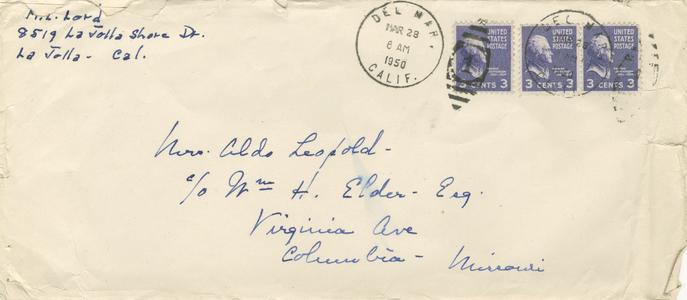 M.L. Lord
8519 La Jolla Shore Dr.
La Jolla - Cal.
DEL MAR,
MAR 28
6 AM
1950
CALIF.
UNITED STATES POSTAGE
3 CENTS 3
UNITED STATES POSTAGE
3 CENTS 3
UNITED STATES POSTAGE
3 CENTS 3
DEL M
Mrs. Aldo Leopold -
c/o Wm H. Elder - Esq.
Virginia Ave
Columbia - Missouri